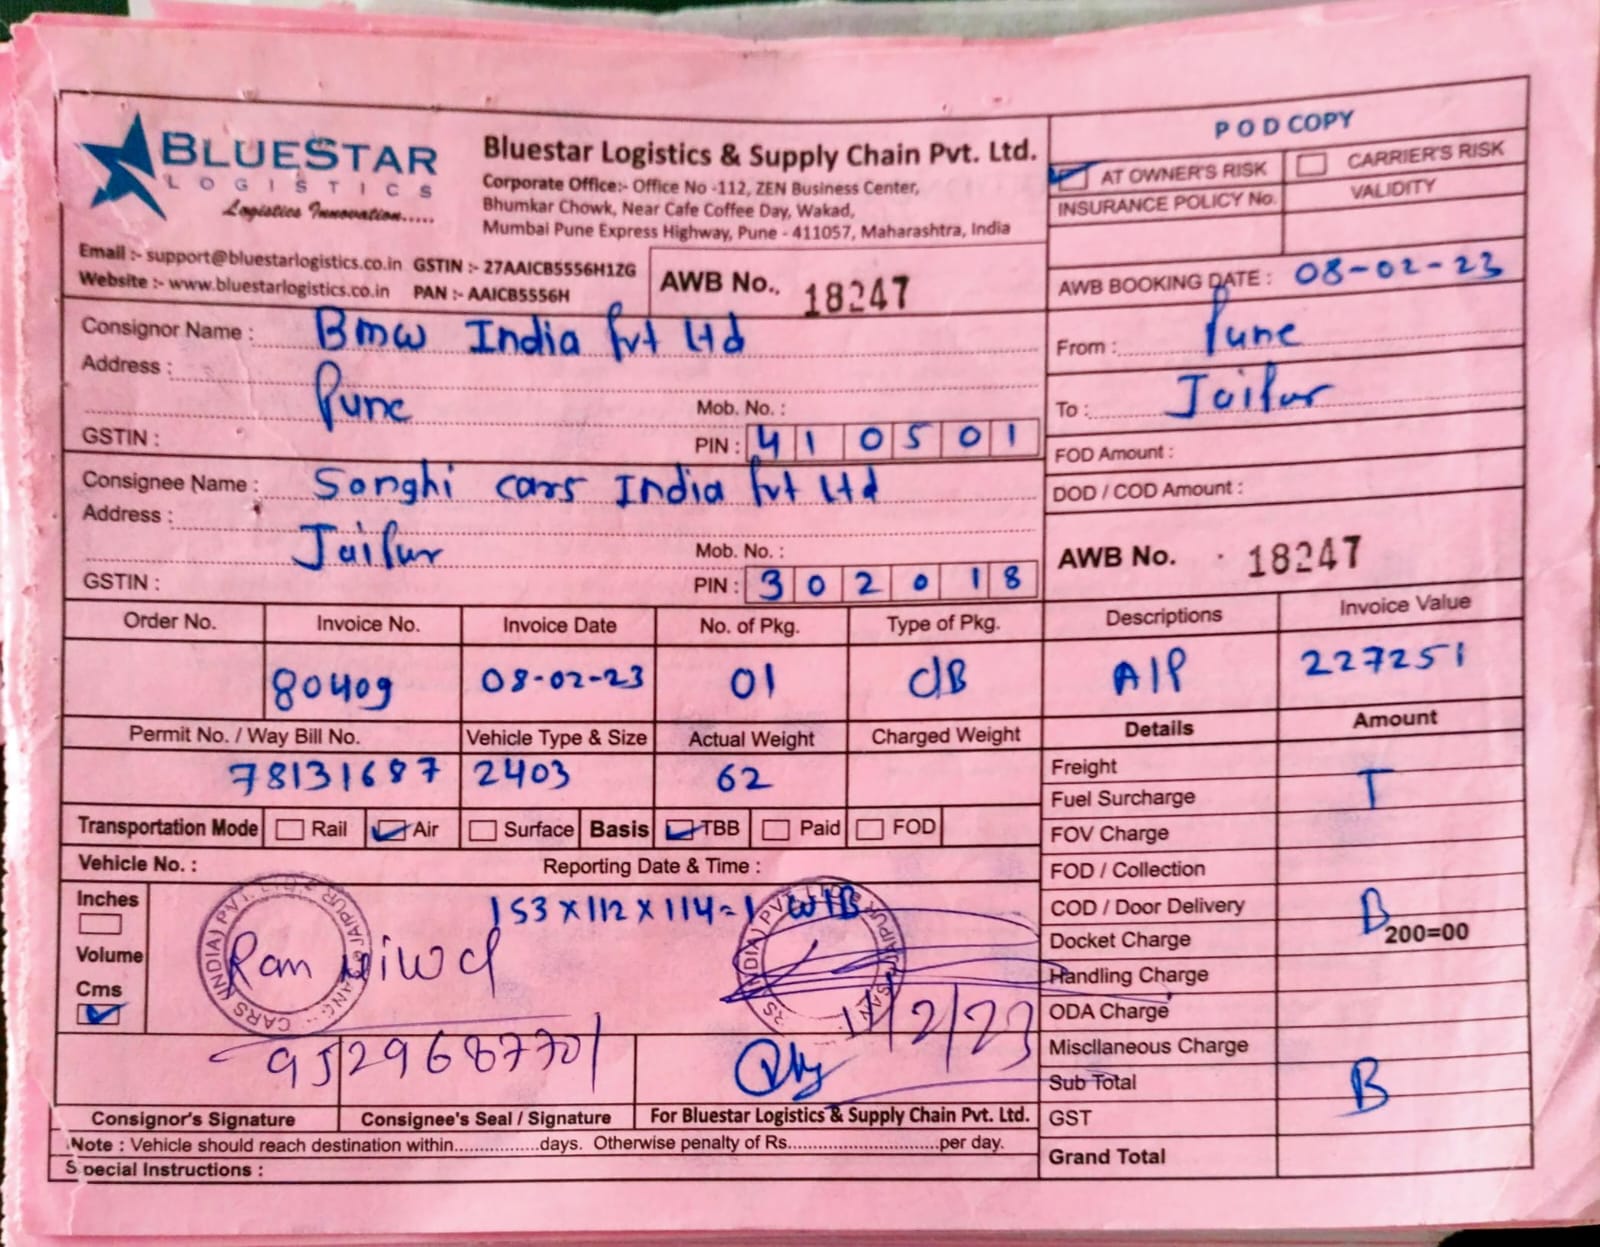 BLUESTAR
LOGISTICS
Logistics Innovation.....
Bluestar Logistics & Supply Chain Pvt. Ltd.
Corporate Office:- Office No -112, ZEN Business Center,
Bhumkar Chowk, Near Cafe Coffee Day, Wakad,
Mumbai Pune Express Highway, Pune - 411057, Maharashtra, India
Email :- support@bluestarlogistics.co.in GSTIN :- 27AAICB5556H1ZG
Website :- www.bluestarlogistics.co.in PAN :- AAICB5556H
AWB No.. 18247
POD COPY
AT OWNER'S RISK CARRIER'S RISK
INSURANCE POLICY No. VALIDITY
AWB BOOKING DATE : 08-02-23
Consignor Name : Bmw India Pvt Ltd
Address :
Pune Mob. No. :
GSTIN : PIN : 410501
From : Pune
To : Jaipur
FOD Amount :
DOD / COD Amount :
Consignee Name : Songhi cars India Pvt Ltd
Address :
Jaipur Mob. No. :
GSTIN : PIN : 302018
AWB No. 18247
Order No. Invoice No. Invoice Date No. of Pkg. Type of Pkg. Descriptions Invoice Value
80409 08-02-23 01 C/B A/P 227251
Permit No. / Way Bill No. Vehicle Type & Size Actual Weight Charged Weight Details Amount
78131687 2403 62
Freight
Fuel Surcharge T
Transportation Mode Rail Air Surface Basis TBB Paid FOD
FOV Charge
Vehicle No. : Reporting Date & Time :
FOD / Collection
Inches
153 x 112 x 114 = 1 W/B
COD / Door Delivery B
Docket Charge 200=00
Volume
Ram niwas
Handling Charge
Cms
11/2/23
ODA Charge
9529687701
Miscllaneous Charge
Sub Total B
Consignor's Signature Consignee's Seal / Signature For Bluestar Logistics & Supply Chain Pvt. Ltd.
GST
Note : Vehicle should reach destination within.................days. Otherwise penalty of Rs..............................per day.
Grand Total
Special Instructions :